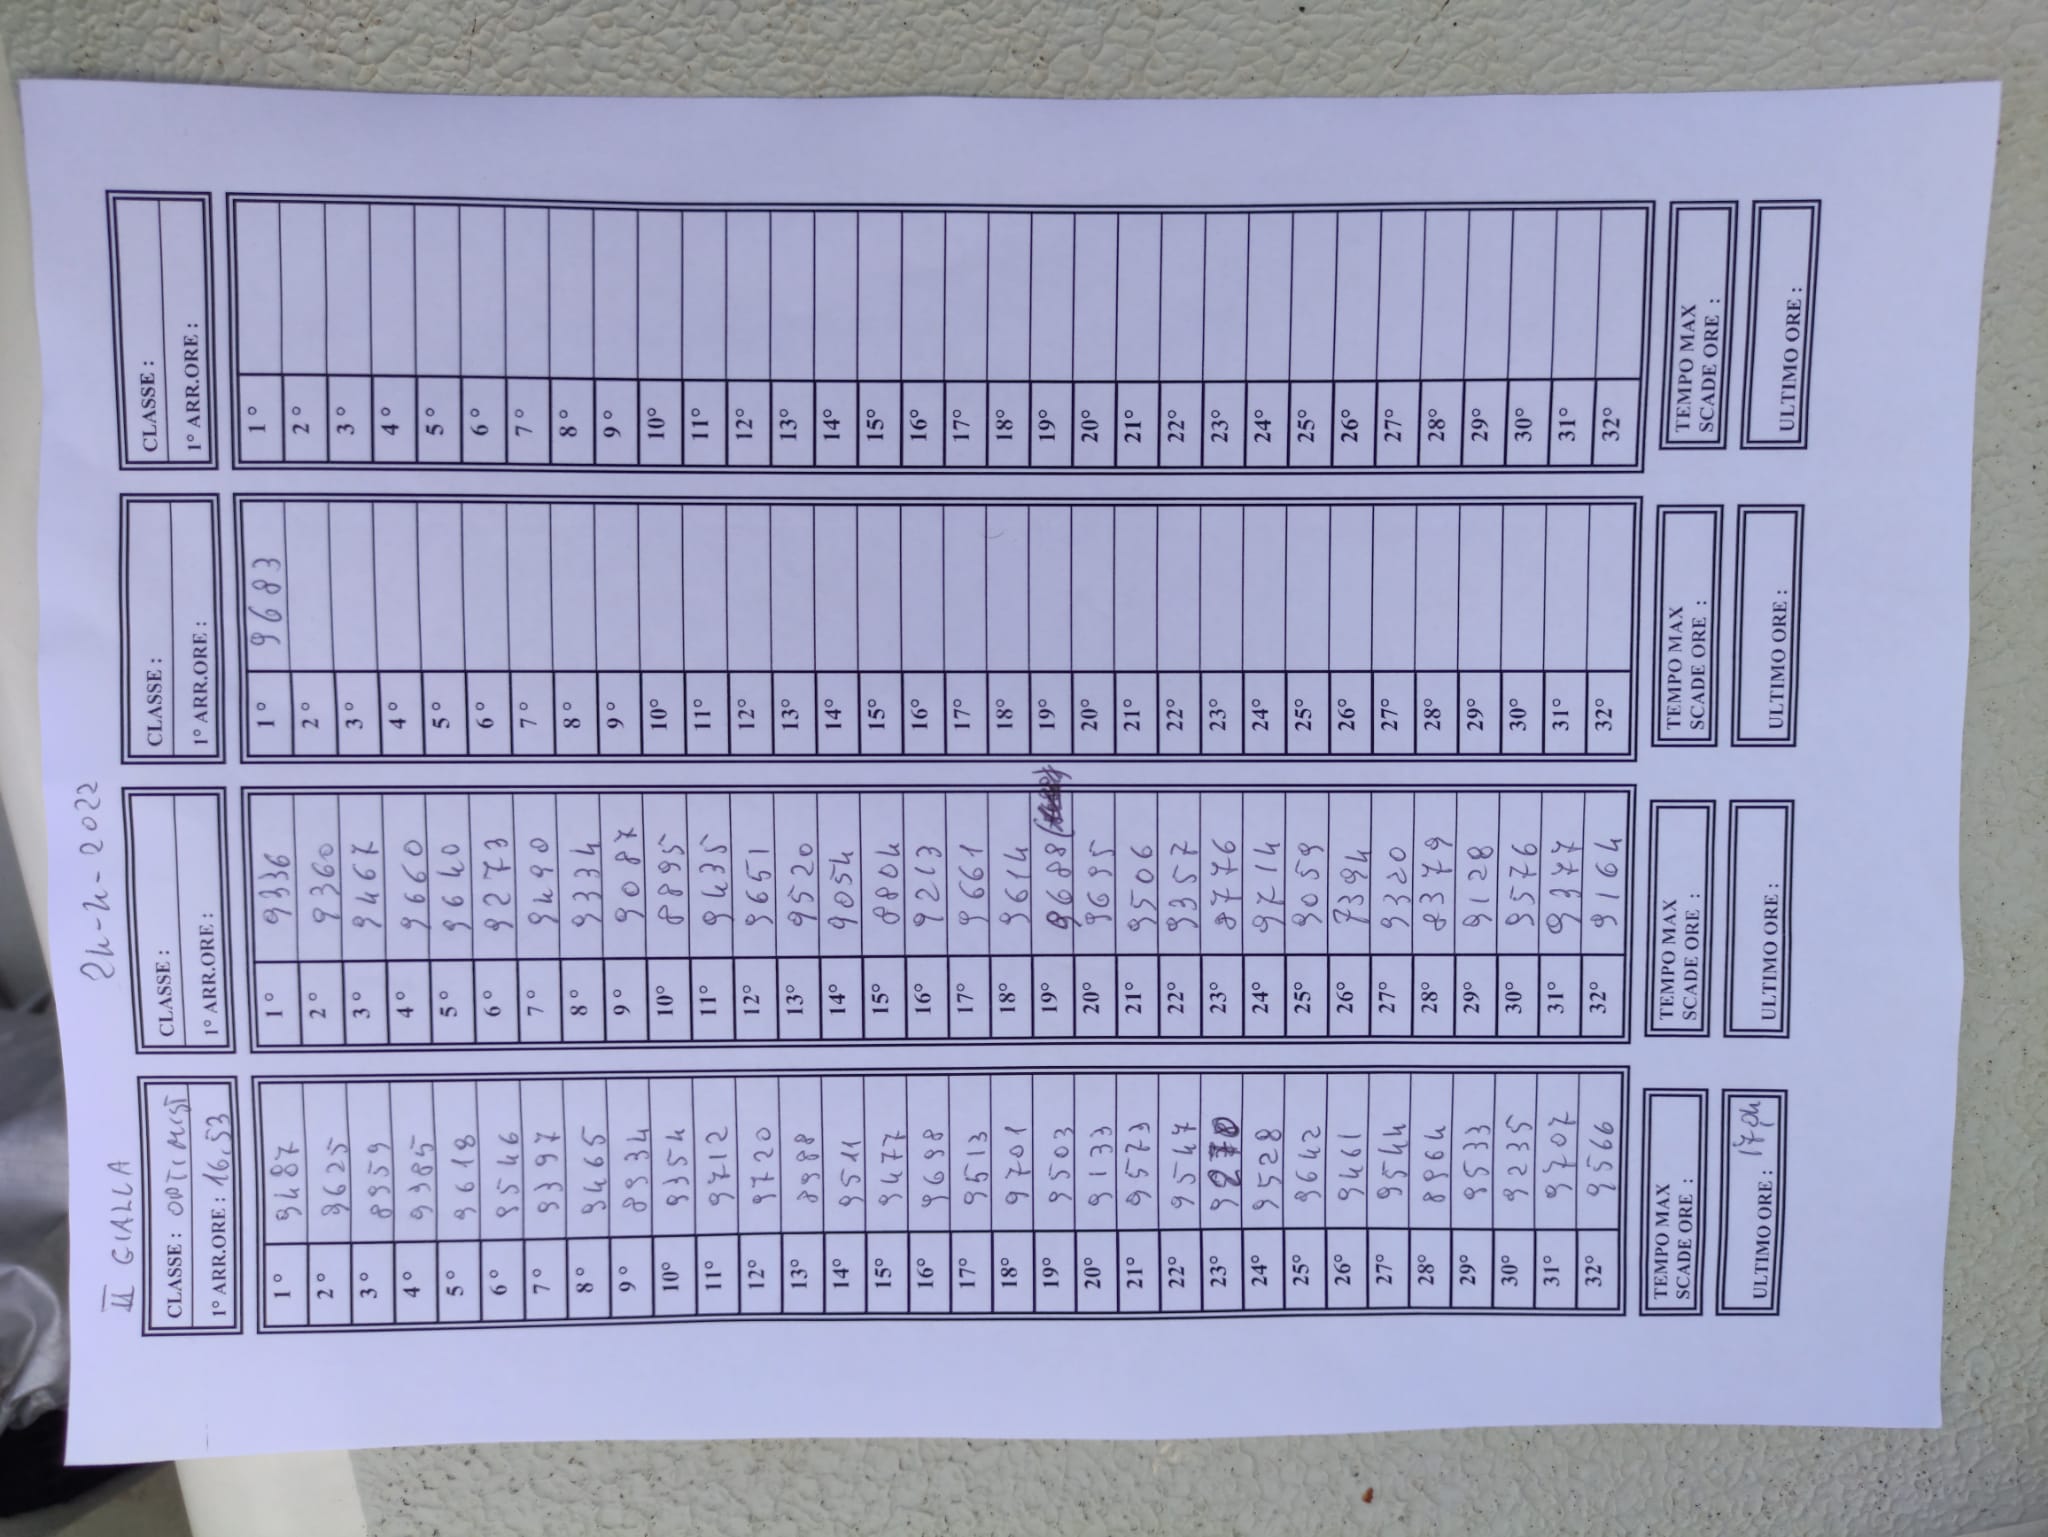 II GIALLA
24-4-2022
CLASSE : OPTIMIST
1° ARR.ORE : 16,53
1° 9487
2° 9625
3° 8959
4° 9385
5° 9618
6° 9546
7° 9397
8° 9465
9° 8934
10° 9354
11° 9712
12° 9720
13° 8988
14° 9511
15° 9477
16° 9698
17° 9513
18° 9701
19° 9503
20° 9133
21° 9573
22° 9547
23° 9270
24° 9528
25° 9642
26° 9461
27° 9544
28° 8964
29° 9533
30° 9235
31° 9707
32° 9566
TEMPO MAX
SCADE ORE :
ULTIMO ORE : 17,04
CLASSE :
1° ARR.ORE :
1° 9336
2° 9360
3° 9467
4° 9660
5° 9640
6° 9273
7° 9490
8° 9334
9° 9087
10° 8895
11° 9435
12° 9651
13° 9520
14° 9054
15° 8804
16° 9213
17° 9661
18° 9614
19° 9688
20° 9695
21° 9506
22° 9357
23° 8776
24° 9714
25° 9059
26° 7394
27° 9320
28° 8379
29° 9128
30° 9576
31° 9377
32° 9164
TEMPO MAX
SCADE ORE :
ULTIMO ORE :
CLASSE :
1° ARR.ORE :
1° 9683
2°
3°
4°
5°
6°
7°
8°
9°
10°
11°
12°
13°
14°
15°
16°
17°
18°
19°
20°
21°
22°
23°
24°
25°
26°
27°
28°
29°
30°
31°
32°
TEMPO MAX
SCADE ORE :
ULTIMO ORE :
CLASSE :
1° ARR.ORE :
1°
2°
3°
4°
5°
6°
7°
8°
9°
10°
11°
12°
13°
14°
15°
16°
17°
18°
19°
20°
21°
22°
23°
24°
25°
26°
27°
28°
29°
30°
31°
32°
TEMPO MAX
SCADE ORE :
ULTIMO ORE :